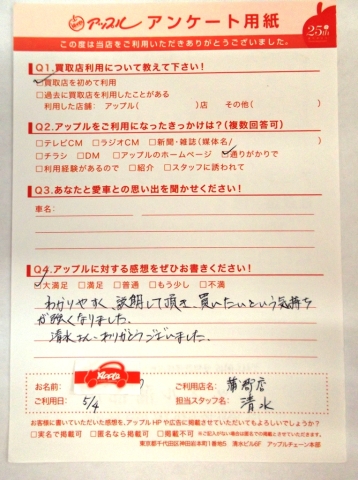 アップル アンケート用紙
25th
この度は当店をご利用いただきありがとうございました。
Q1.買取店利用について教えて下さい!
□買取店を初めて利用
□過去に買取店を利用したことがある
利用した店舗: アップル( )店 その他( )
Q2.アップルをご利用になったきっかけは?(複数回答可)
□テレビCM □ラジオCM □新聞・雑誌(媒体名/ )
□チラシ □DM □アップルのホームページ □通りがかりで
□利用経験があるので □紹介 □スタッフに誘われて
Q3.あなたと愛車との思い出を聞かせください!
車名:
Q4.アップルに対する感想をぜひお書きください!
□大満足 □満足 □普通 □もう少し □不満
わかりやすく、説明して頂き、買いたいという気持ち
が強くなりました。
清水さん、ありがとうございました。
お名前: Apple
ご利用店名: 蒲郡店
ご利用日: 5/4
担当スタッフ名: 清水
お客様に書いていただいた感想を、アップルHPや広告に掲載させていただいてもよろしいでしょうか?
□実名で掲載可 □匿名なら掲載可 □掲載不可 ※ご記入がない場合は匿名での掲載とさせていただきます。
東京都千代田区神田岩本町1番地5 清水ビル6F アップルチェーン本部